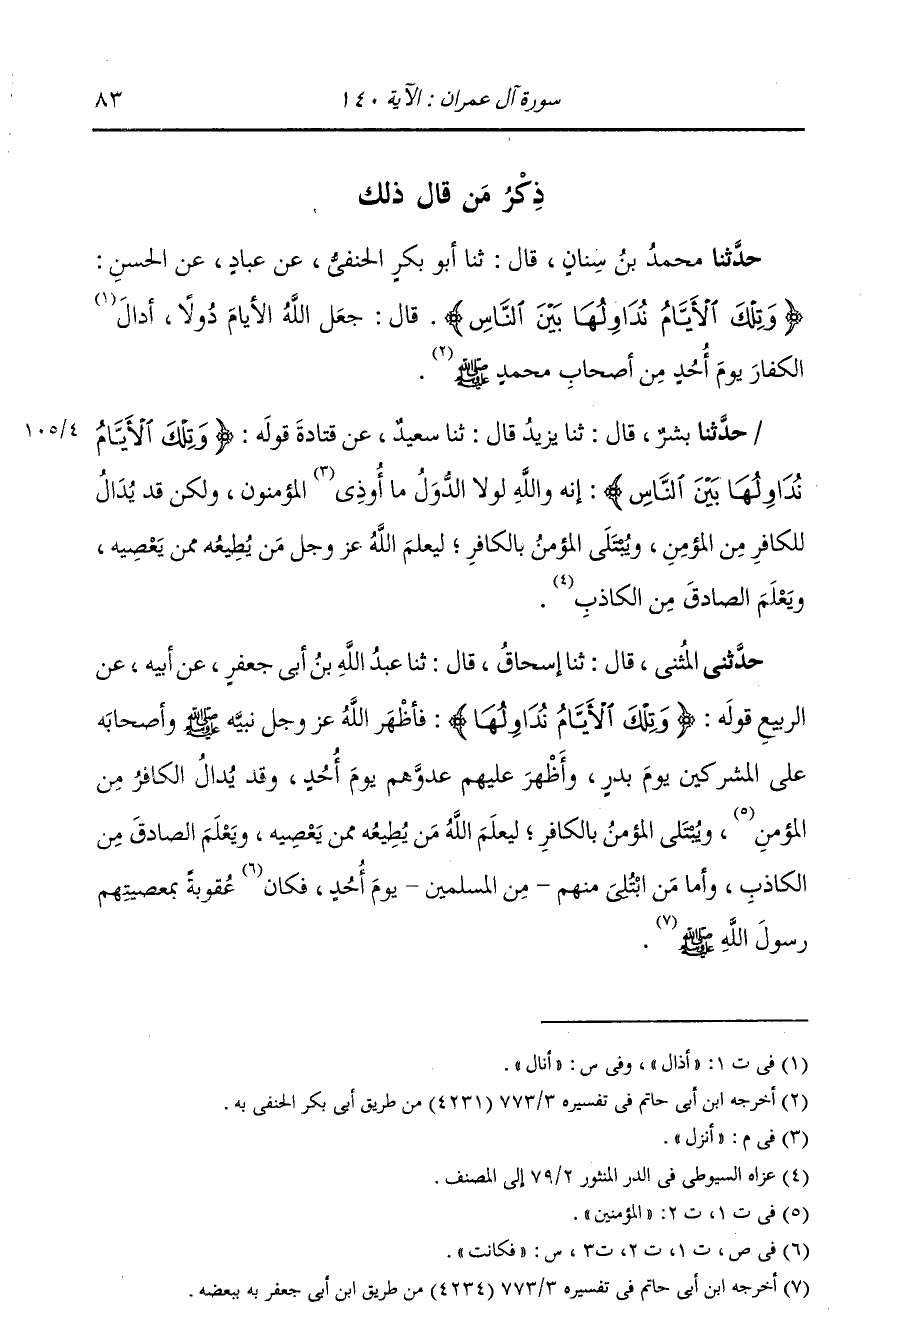 سورة آل عمران : الآية ١٤٠
٨٣
ذِكْرُ مَن قال ذلك
حدَّثنا محمدُ بنُ سِنانٍ ، قال : ثنا أبو بكرٍ الحنفىُّ ، عن عبادٍ ، عن الحسنِ :
﴿ وَتِلْكَ ٱلْأَيَّامُ نُدَاوِلُهَا بَيْنَ ٱلنَّاسِ ﴾ . قال : جعَل اللَّهُ الأيامَ دُولًا ، أدالَ(١)
الكفارَ يومَ أُحُدٍ مِن أصحابِ محمدٍ ﷺ(٢) .
/ حدَّثنا بشرٌ ، قال : ثنا يزيدُ قال : ثنا سعيدٌ ، عن قتادةَ قولَه : ﴿ وَتِلْكَ ٱلْأَيَّامُ
١٠٥/٤
نُدَاوِلُهَا بَيْنَ ٱلنَّاسِ ﴾ : إنه واللَّهِ لولا الدُّوَلُ ما أُوذِى(٣) المؤمنون ، ولكن قد يُدَالُ
للكافرِ مِن المؤمنِ ، ويُبْتَلَى المؤمنُ بالكافرِ ؛ ليعلمَ اللَّهُ عز وجل مَن يُطِيعُه ممن يَعْصِيه ،
ويَعْلَمَ الصادقَ مِن الكاذبِ(٤) .
حدَّثنى المُثنى ، قال : ثنا إسحاقُ ، قال : ثنا عبدُ اللَّهِ بنُ أبى جعفرٍ ، عن أبيه ، عن
الربيعِ قولَه : ﴿ وَتِلْكَ ٱلْأَيَّامُ نُدَاوِلُهَا ﴾ : فأظْهَر اللَّهُ عز وجل نبيَّه ﷺ وأصحابَه
على المشركين يومَ بدرٍ ، وأَظْهرَ عليهم عدوَّهم يومَ أُحُدٍ ، وقد يُدالُ الكافرُ مِن
المؤمنِ(٥) ، ويُبْتَلى المؤمنُ بالكافرِ ؛ ليعلَمَ اللَّهُ مَن يُطِيعُه ممن يَعْصِيه ، ويَعْلَمَ الصادقَ مِن
الكاذبِ ، وأما مَن ابْتُلِىَ منهم - مِن المسلمين - يومَ أُحُدٍ ، فكان(٦) عُقوبةً بمعصيتِهم
رسولَ اللَّهِ ﷺ(٧) .
(١) فى ت ١: «أذال» ، وفى س : «أنال» .
(٢) أخرجه ابن أبى حاتم فى تفسيره ٧٧٣/٣ (٤٢٣١) من طريق أبى بكر الحنفى به .
(٣) فى م : «أنزل» .
(٤) عزاه السيوطى فى الدر المنثور ٧٩/٢ إلى المصنف .
(٥) فى ت ١، ت ٢: «المؤمنين» .
(٦) فى ص، ت ١، ت ٢، ت٣ ، س : «فكانت» .
(٧) أخرجه ابن أبى حاتم فى تفسيره ٧٧٣/٣ (٤٢٣٤) من طريق ابن أبى جعفر به ببعضه .